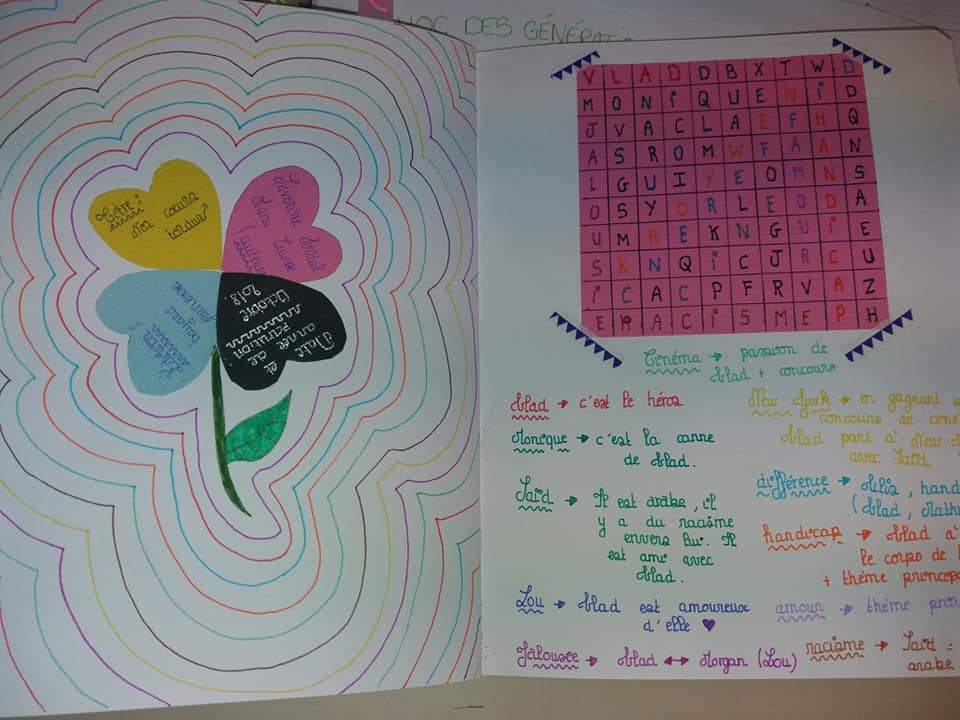 HOC DES GÉNÉRATI
Titre :
"Nos cœurs
tordus"
Séverine Vidal
Manu Causse
l'auteur
Date et
année de
parution :
Octobre
2018.
L'édition
bayard
jeunesse
V L A D D B X T W D
M O N i Q U E N i D
J V A C L A E F H Q
A S R O M W F A A N
L G U I Y E O M N S
O S Y O R L E O D A
U M R E K N G U i E
S K N Q i C J R C U
i C A C P F R V A Z
E R A C i S M E P H
Cinéma → passion de
Vlad + concours
Vlad → c'est le héros
Monique → c'est la canne
de Vlad.
Saïd → Il est arabe, il
y a du racisme
envers lui. Il
est ami avec
Vlad.
Lou → Vlad est amoureux
d'elle ♥
Jalousie → Vlad ↔ Morgan (Lou)
New-York → en gagnant
concours de ciné
Vlad part à New-
avec Saïd.
différence → Ulis, hand
(Vlad, Mathu
handicap → Vlad à
le corps de
+ thème princip
amour → thème prin
racisme → Saïd =
arabe